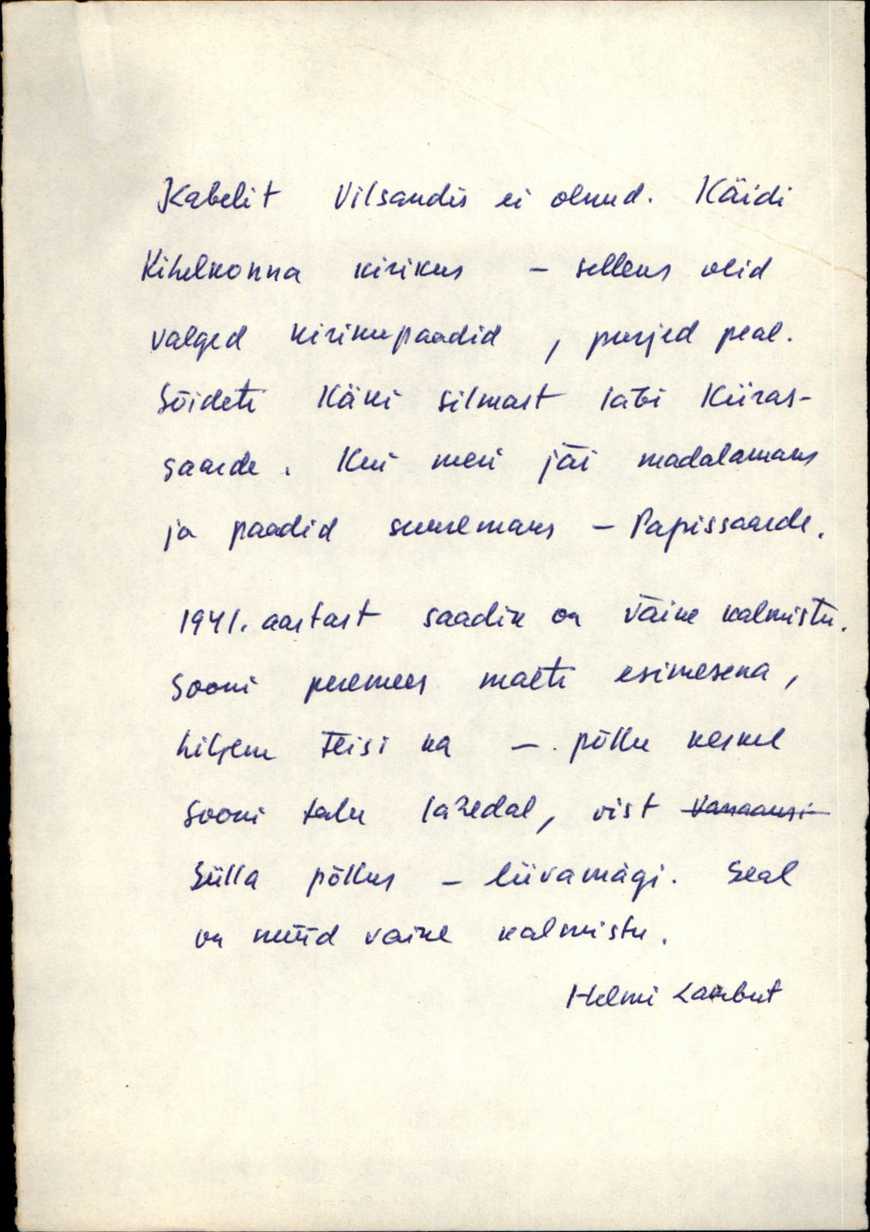 Kabelit Vilsandis ei olnud. Käidi
Kihelkonna kirikus – selleks olid
valged kirikupaadid, purjed peal.
Sõideti Käki silmast läbi Kiiras-
saarde. Kui meri jäi madalamaks
ja paadid suuremaks – Papissaarde.
1941. aastast saadik on väike kalmistu.
Sooni peremees maeti esimesena,
hiljem teisi ka – põllu keskel
Sooni talu lähedal, vist
Sülla põllus – liivamägi. Seal
on nüüd väike kalmistu.
Helmi